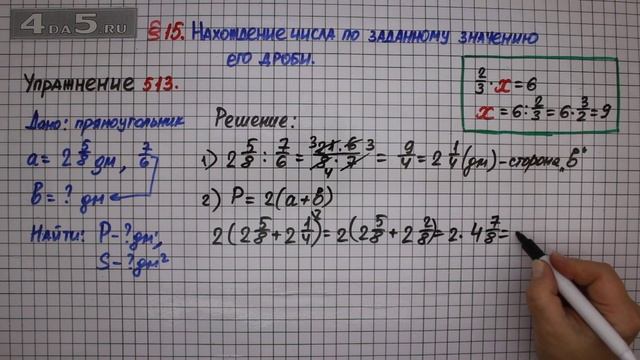 4DA5.RU
§15. Нахождение числа по заданному значению
его дроби.
Упражнение 513.
2/3 · x = 6
x = 6 : 2/3 = 6 · 3/2 = 9
Дано: прямоугольник
a = 2 5/8 дм, 7/6
b = ? дм
Найти: P - ? дм;
S - ? дм²
Решение:
1) 2 5/8 : 7/6 = 3 21 · 6 3 / 4 8 · 7 = 9/4 = 2 1/4 (дм) - сторона „b"
2) P = 2(a+b)
2(2 5/8 + 2 1/4 ²) = 2(2 5/8 + 2 2/8) = 2 · 4 7/8 =